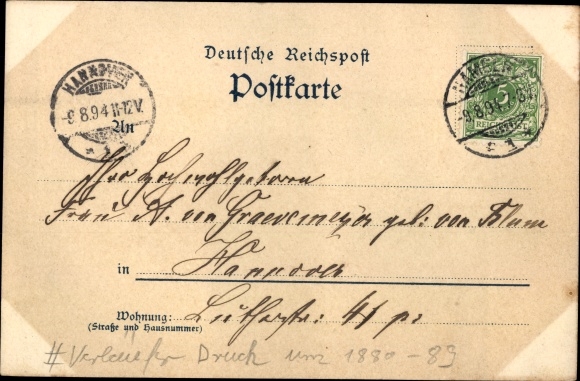 Deutsche Reichspost
Postkarte
HANNOVER
-9.8.94 11-12V.
* 1 *
9.8.94 7-8
5
REICHSPOST
An
Ihro Hochwohlgeboren
Frau A. von Graevemeyer geb: von Blum
in Hannover
Wohnung: Lutherstr: 41 p:
(Straße und Hausnummer)
# Vorläufer Druck um 1880-89